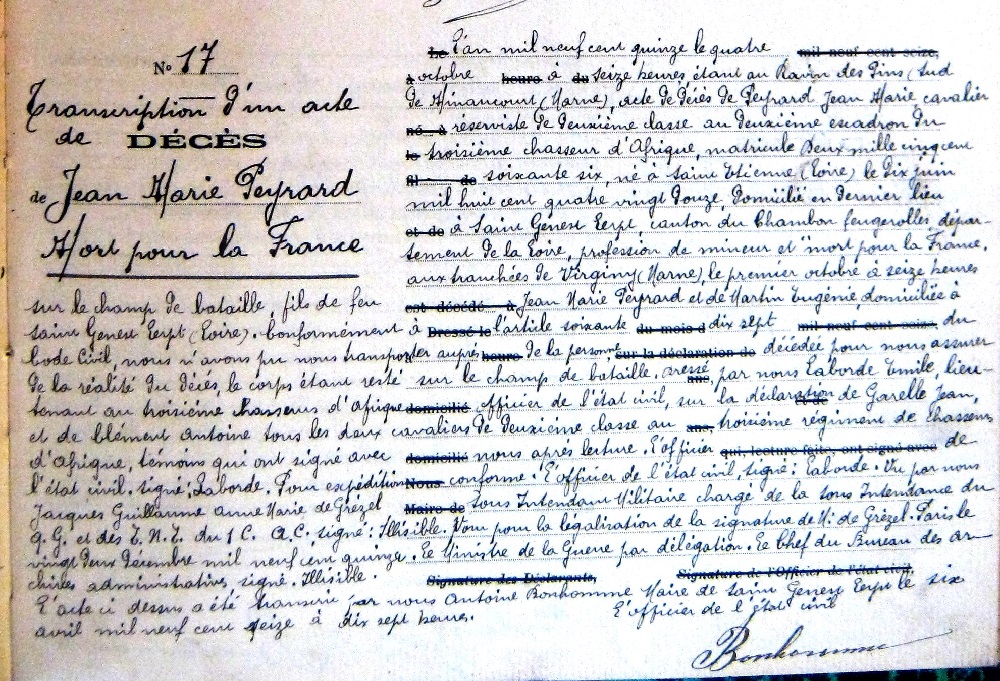 N° 17
Transcription d'un acte
de DÉCÈS
de Jean Marie Peyrard
Mort pour la France
Le L'an mil neuf cent quinze le quatre mil neuf cent seize,
à octobre heure à du seize heures, étant au Ravin des Pins (Sud
de Minancourt (Marne), acte de décès de Peyrard Jean Marie, cavalier
né à réserviste de deuxième classe au deuxième escadron du
le troisième chasseur d'Afrique, matricule deux mille cinq cent
fil de soixante six, né à Saint Etienne (Loire) le dix juin
mil huit cent quatre vingt douze domicilié en dernier lieu
et de à Saint Genest Lerpt, canton du Chambon feugerolles dépar-
tement de la Loire, profession de mineur et "mort pour la France,
aux tranchées de Virginy (Marne), le premier octobre à seize heures
sur le champ de bataille, fils de feu est décédé à Jean Marie Peyrard et de Martin Eugénie, domiciliée à
Saint Genest Lerpt (Loire). Conformément à Dressé le l'article soixante du mois d dix sept mil neuf cent seize, du
Code Civil, nous n'avons pu nous transporter auprès heure de la personne sur la déclaration de décédée pour nous assurer
de la réalité du décès, le corps étant resté sur le champ de bataille. Dressé ans, par nous Laborde Emile, lieu-
tenant au troisième Chasseurs d'Afrique domicilié officier de l'état civil, sur la déclaration et de de Garelle Jean,
et de Clément Antoine tous les deux cavaliers de deuxième classe au ans, troisième régiment de Chasseurs
d'Afrique, témoins qui ont signé avec domicilié nous après lecture. L'officier qui, lecture faite, ont signé avec de
l'état civil. signé: Laborde. Pour expédition Nous conforme. L'officier de l'état civil, signé: Laborde. Vu par nous
Jacques Guillaume Anne Marie de Grézel Maire de sous Intendant Militaire chargé de la sous Intendance du
q. G. et des E. N. E. du 1 C. A. C. signé: Illisible. Vu pour la légalisation de la signature de M. de Grézel. Paris le
vingt deux Décembre mil neuf cent quinze. Le Ministre de la Guerre par délégation. Le Chef du Bureau des ar-
chives administratives signé. Illisible. Signature des Déclarants, Signature de l'Officier de l'état civil,
L'acte ci dessus a été transcrit par nous Antoine Bonhomme Maire de Saint Genest Lerpt le six
avril mil neuf cent seize à dix sept heures. L'officier de l'état civil
Bonhomme